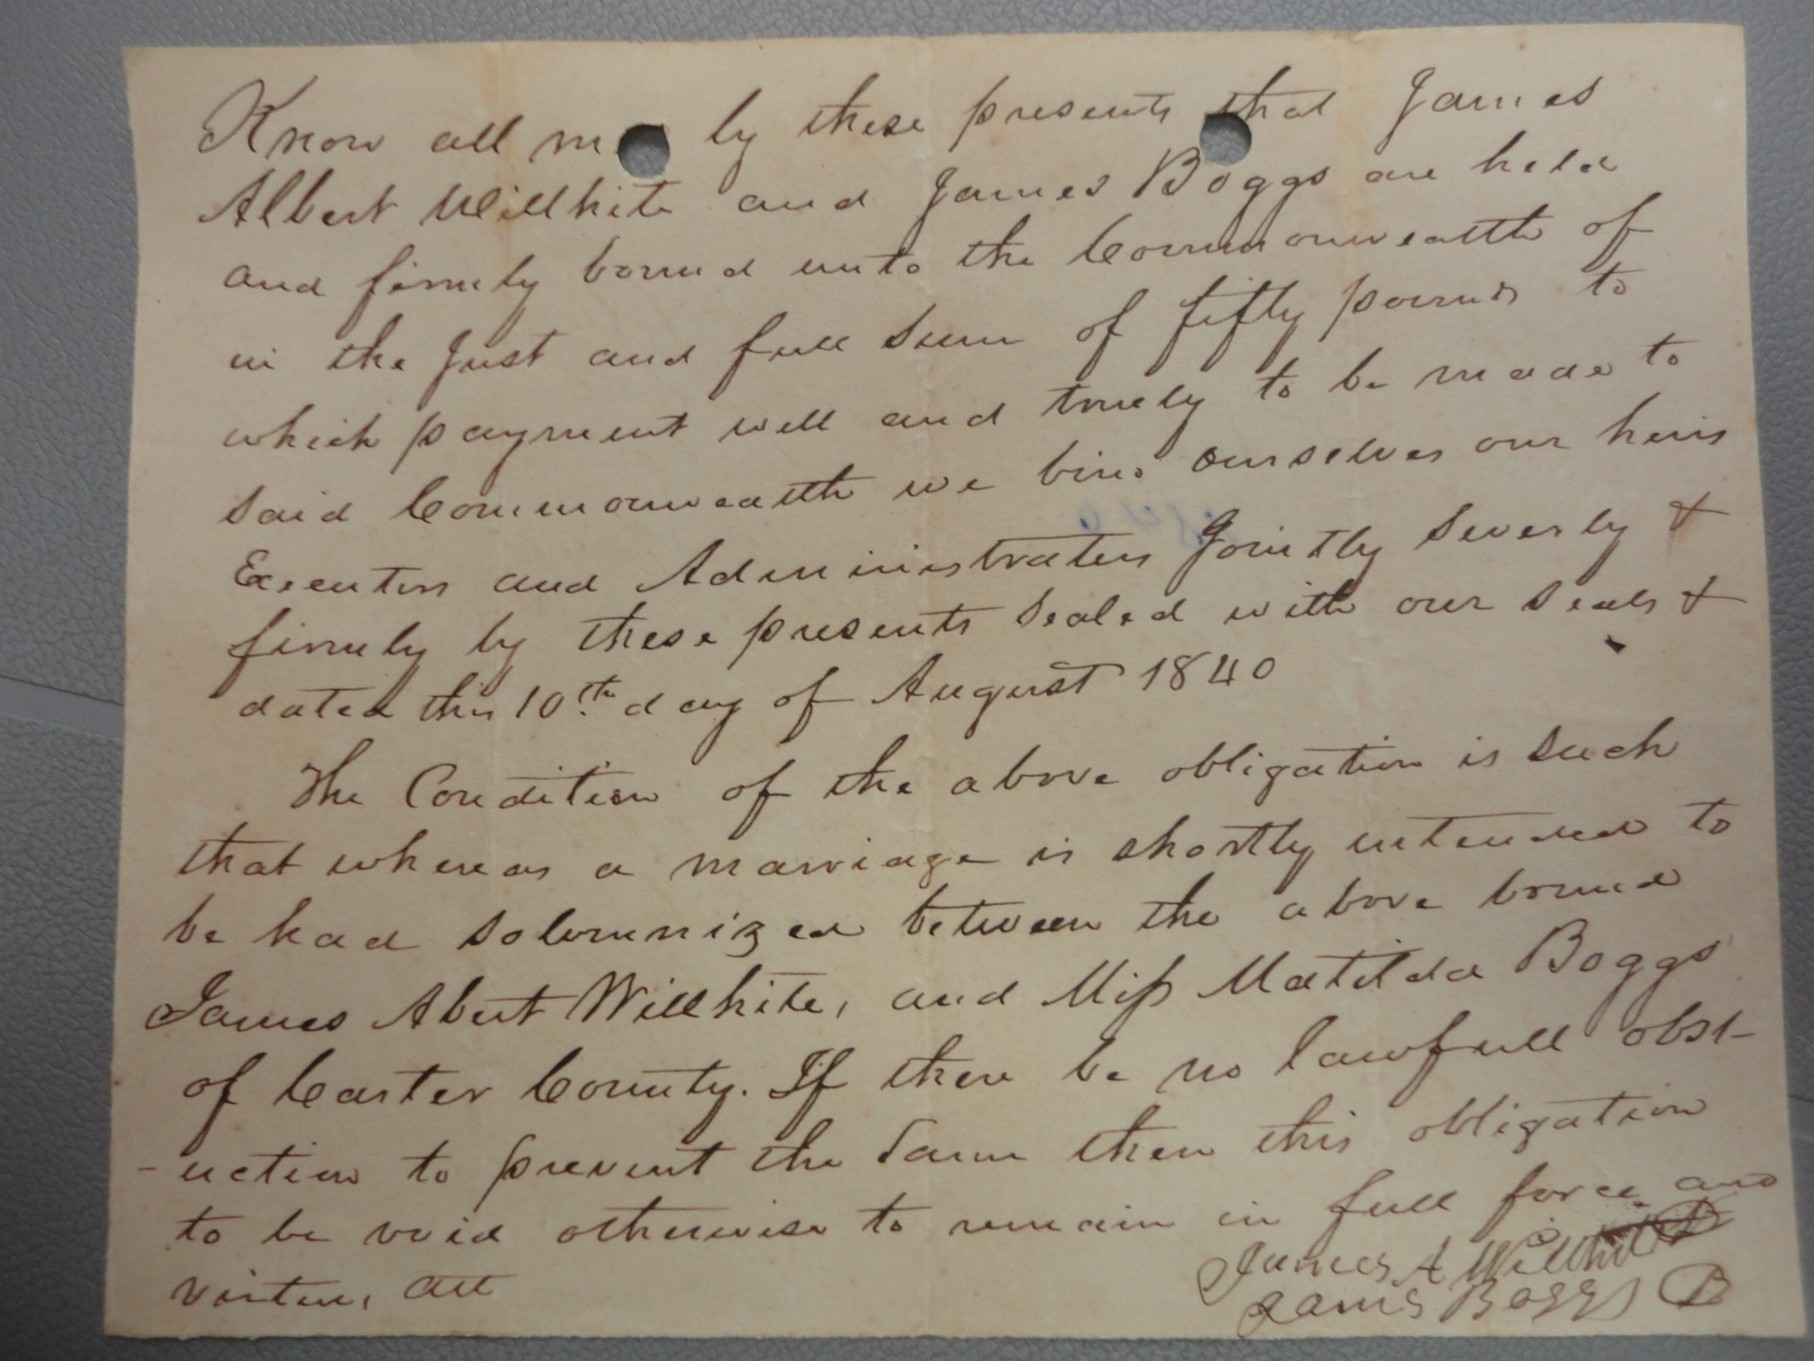 Know all m by these presents that James
Albert Willhite and James Boggs are held
and firmly bound unto the Commonwealth of
in the Just and full Sum of fifty pounds to
which payment well and truely to be made to
Said Commonwealth we bind ourselves our heirs
Executors and Administrators Jointly Severly &
firmly by these presents Sealed with our Seals &
dated this 10th day of August 1840
The Condition of the above obligation is Such
that whereas a marriage is shortly intended to
be had Solemnized between the above bound
James Abert Willhite, and Miss Matilda Boggs
of Carter County. If there be no lawfull obst-
-uction to prevent the Same then this obligation
to be void otherwise to remain in full force and
virtue, att
James A Willhite
James Boggs B